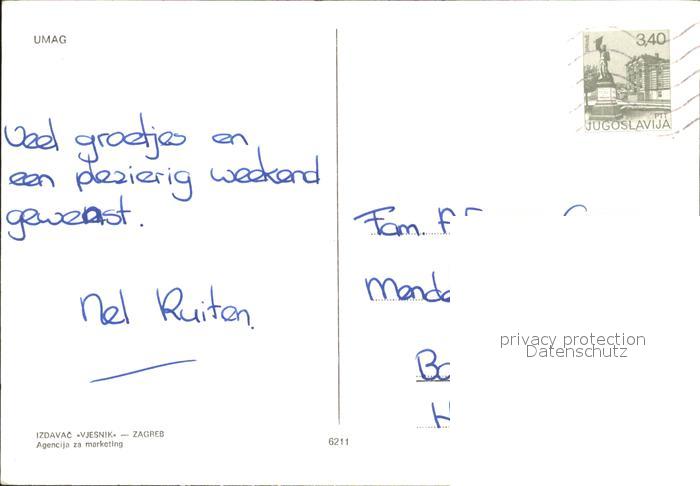 UMAG
3,40
PTT
JUGOSLAVIJA
Veel groetjes en
een plezierig weekend
gewenst.
Nel Ruiten.
Fam.
privacy protection
Datenschutz
IZDAVAČ «VJESNIK» — ZAGREB
Agencija za marketing
6211